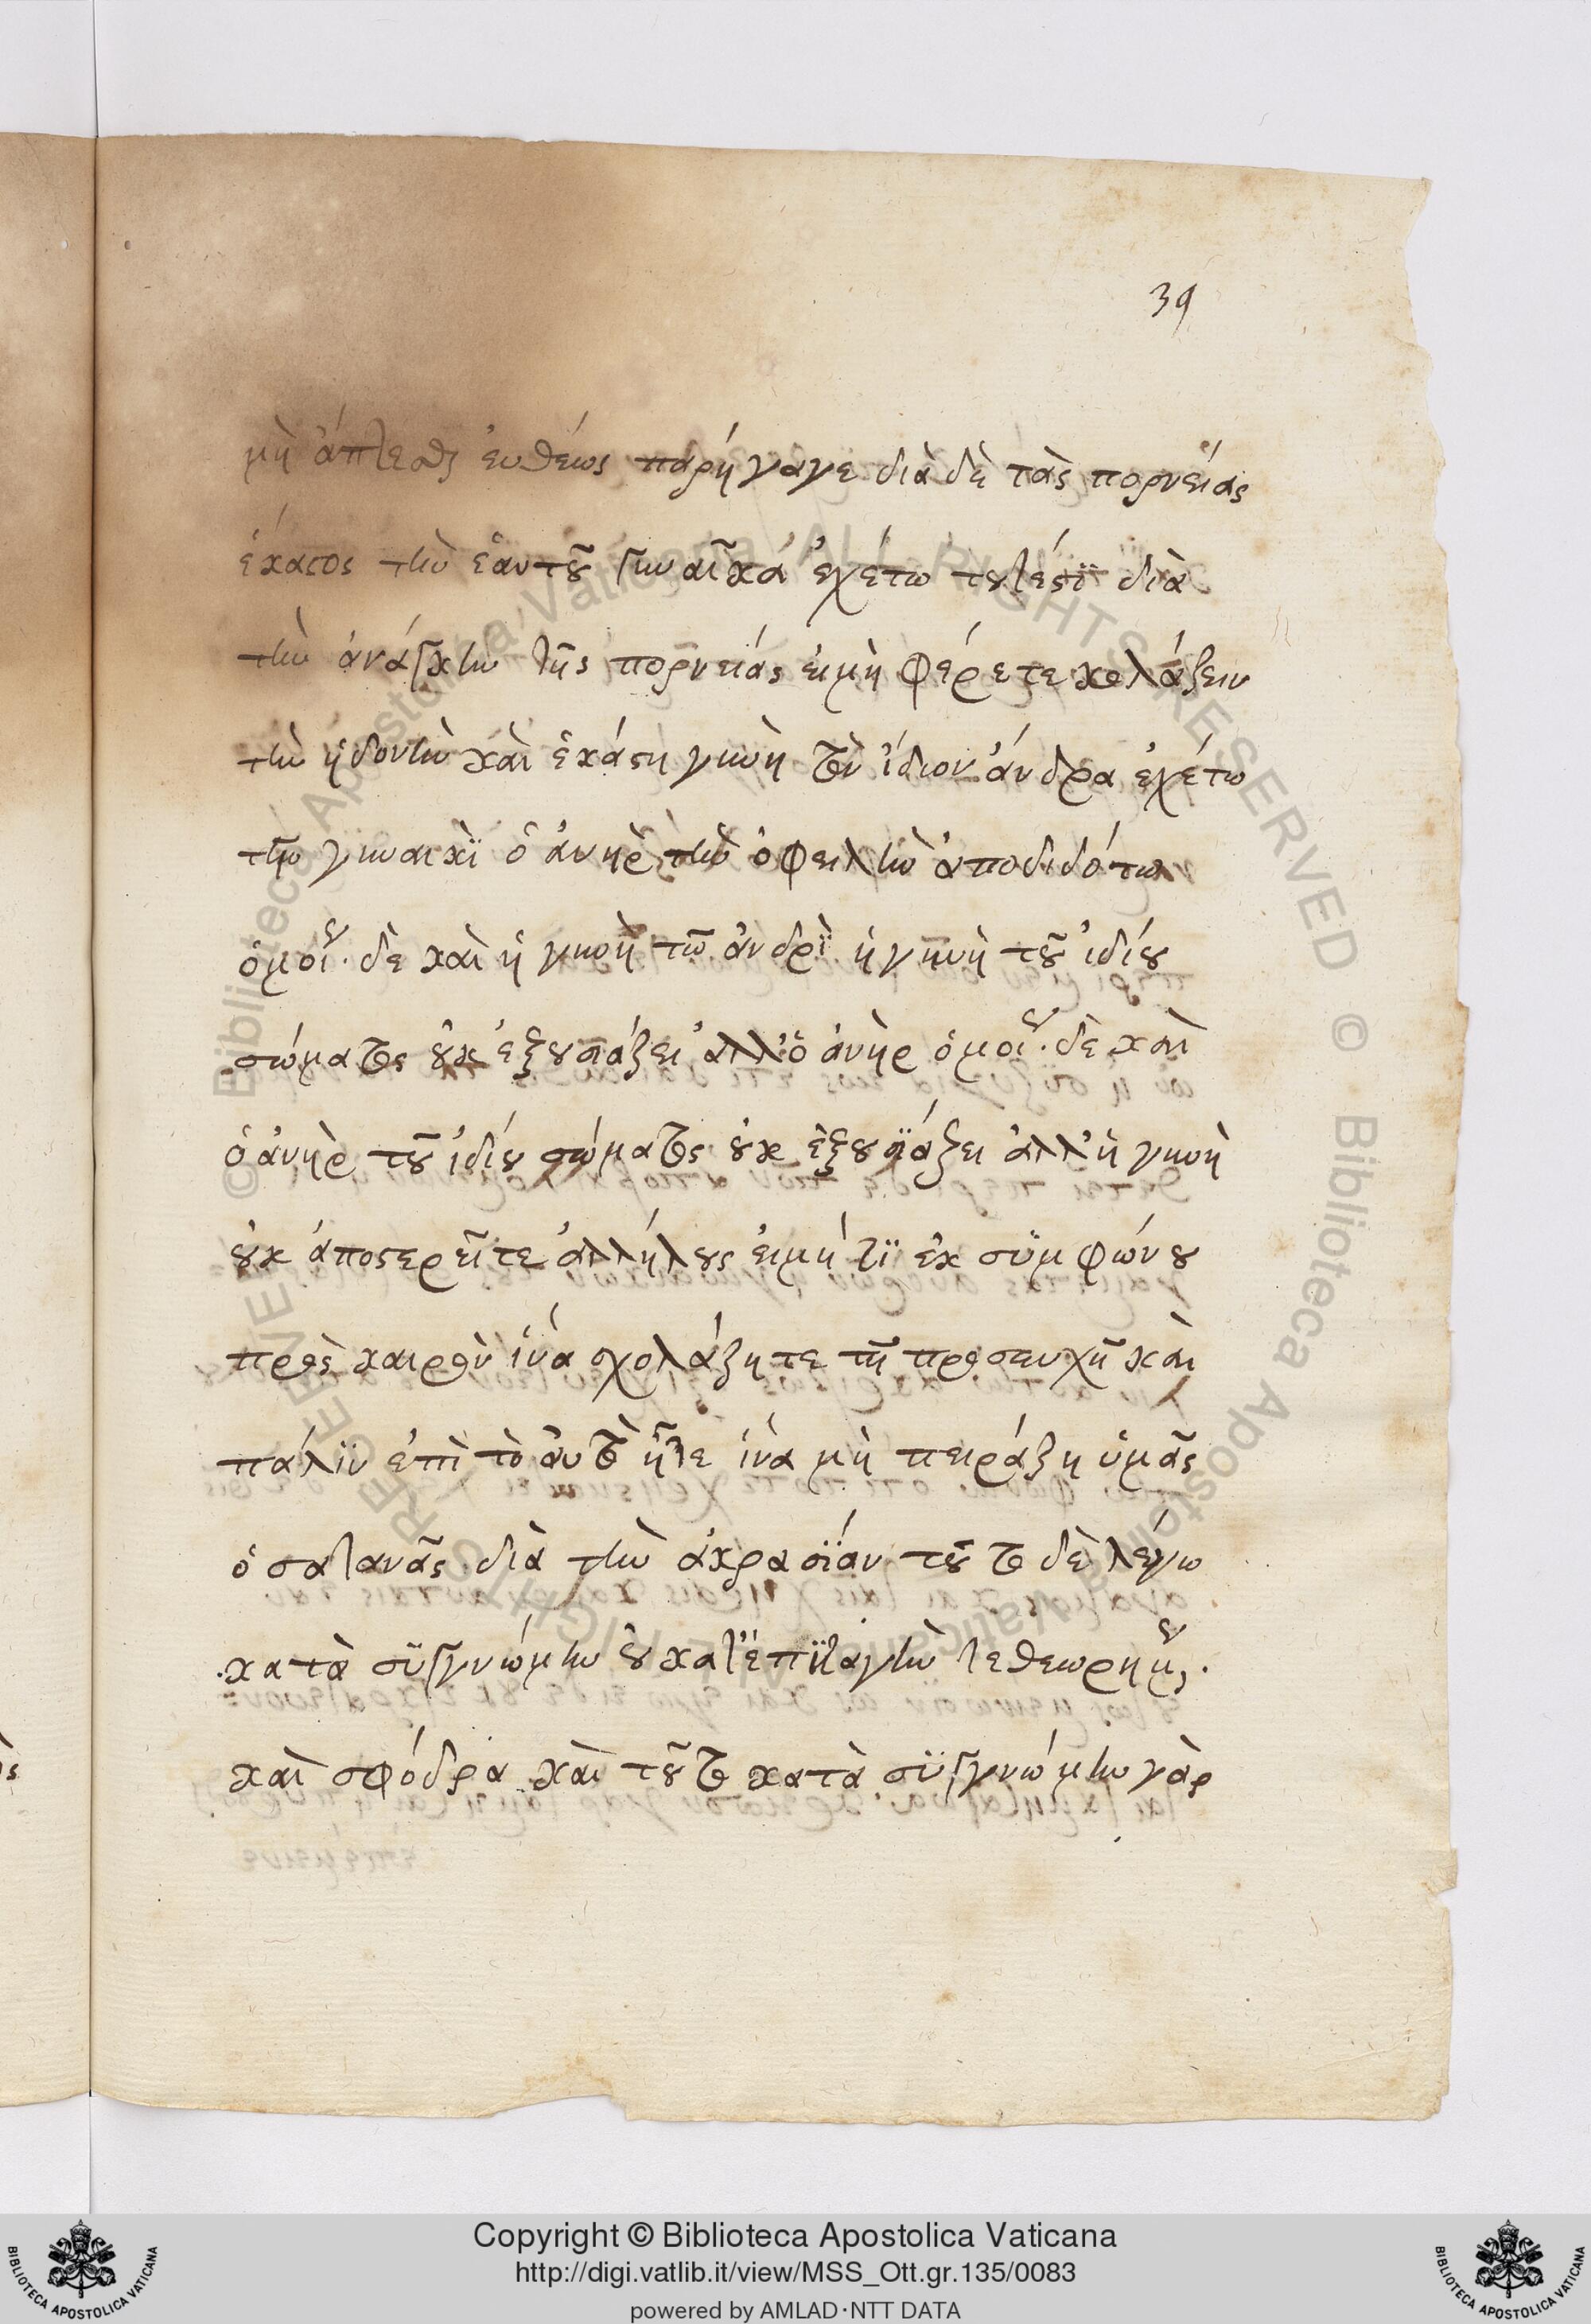 39
μὴ ἅπτεσθαι ευθέως παρήγαγε διὰ δὲ τὰς πορνείας
ἑκαστος τὴν ἑαυτοῦ γυναῖκά ἐχέτω τουτέστϊ διὰ
τὴν ἀνάγκην τῆς πορνειάς εἰμὴ φέρετε κολάζειν
τὴν ἡδονὴν καὶ ἑκάστη γυνὴ τὸν ἴδιον ἄνδρα ἐχέτω
τῆν γυναικῒ ὁ ἀνηρ τὴν ὀφειλὴν ἀποδιδότω
ὁμοί. δὲ καὶ ἡ γυνὴ τῶ ἀνδρῒ ἡ γυνὴ τοῦ ἰδίου
σώματος οὐκ ἐξουσιάζει ἀλλ' ὁ ἀνὴρ ὁμοί. δὲ καὶ
ὁ ἀνὴρ τοῦ ἰδίου σώματος οὐκ ἐξουσϊάζει ἀλλ' ἡ γυνὴ
οὐκ ἀποστερεῖτε ἀλλήλους εἰμή τϊ ἐκ σϋμφώνου
πρὸς καιρὸν ἵνά σχολάζητε τῆ προσευχῆ καὶ
πάλϊν ἐπὶ τὸ ἀυτὸ ἦτε ἵνα μὴ πειράζη ὑμᾶς
ὁ σατανᾶς διὰ τὴν ἀκρασϊάν τοῦτο δὲ λέγω
κατὰ σϋγγνώμην οὐ κατ' ἐπϊταγὴν
καὶ σφόδρα καὶ τοῦτο κατὰ σϋγγνώμην γὰρ
Copyright © Biblioteca Apostolica Vaticana
http://digi.vatlib.it/view/MSS_Ott.gr.135/0083
powered by AMLAD·NTT DATA